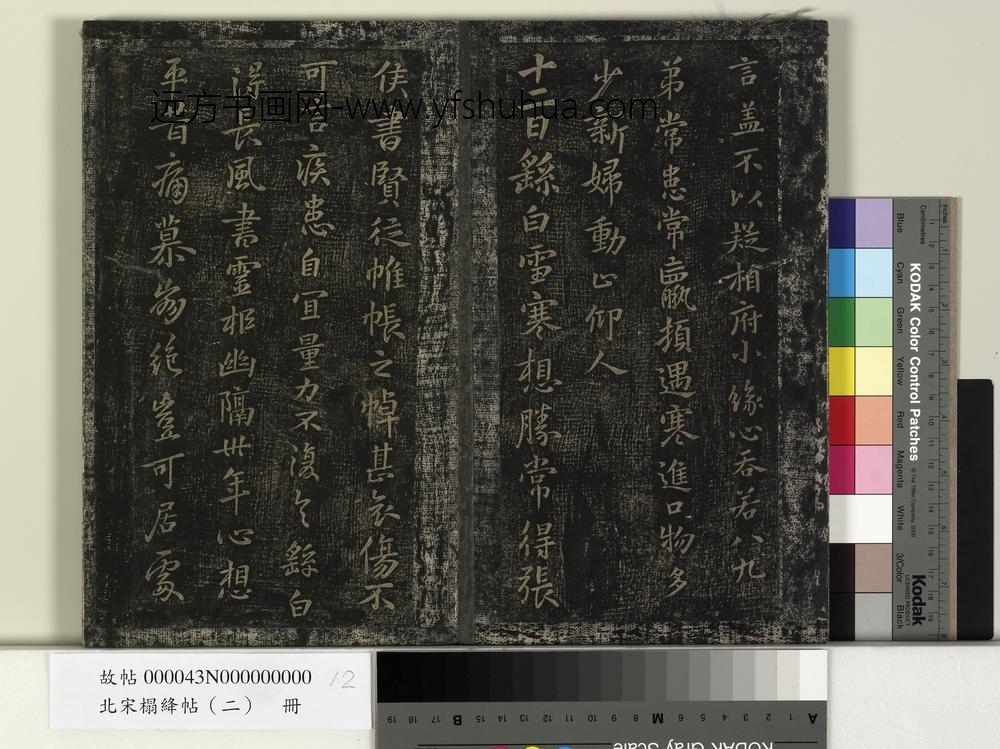 言盖不以疑相府小缘心吞若八九
弟常患常羸頓遇寒進口物多
少新婦動止仰人
十二日繇白雪寒想勝常得張
侯書賢從帷帳之悼甚哀傷不
可言疾患自宜量力不復繇白
得長風書靈柩幽隔卅年心想
平昔痛慕崩絕豈可居處
远方书画网-www.yfshuhua.com
故帖 000043N000000000
12
北宋榻絳帖（二） 冊
KODAK Color Control Patches
© The Tiffen Company, 2000
Kodak
LICENSED PRODUCT
Inches
Centimetres
Blue
Cyan
Green
Yellow
Red
Magenta
White
3/Color
Black
KODAK Gray Scale
A 1 2 3 4 5 6 M 8 9 10 11 12 13 14 15 B 17 18 19